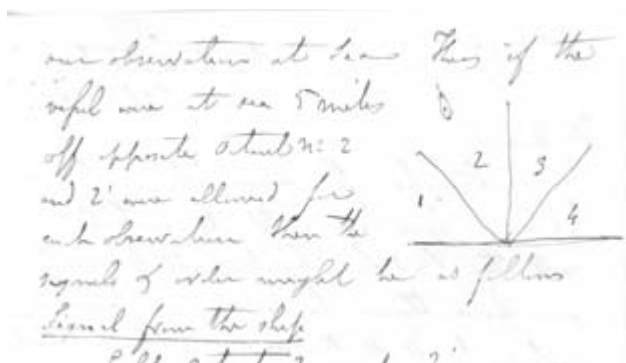 our observations at sea. Thus if the
vessel were at sea 5 miles
off opposite octant No: 2
and 2' were allowed for
each observation then the
signals of order might be as follows
Signal from the ship
2
1
2
3
4